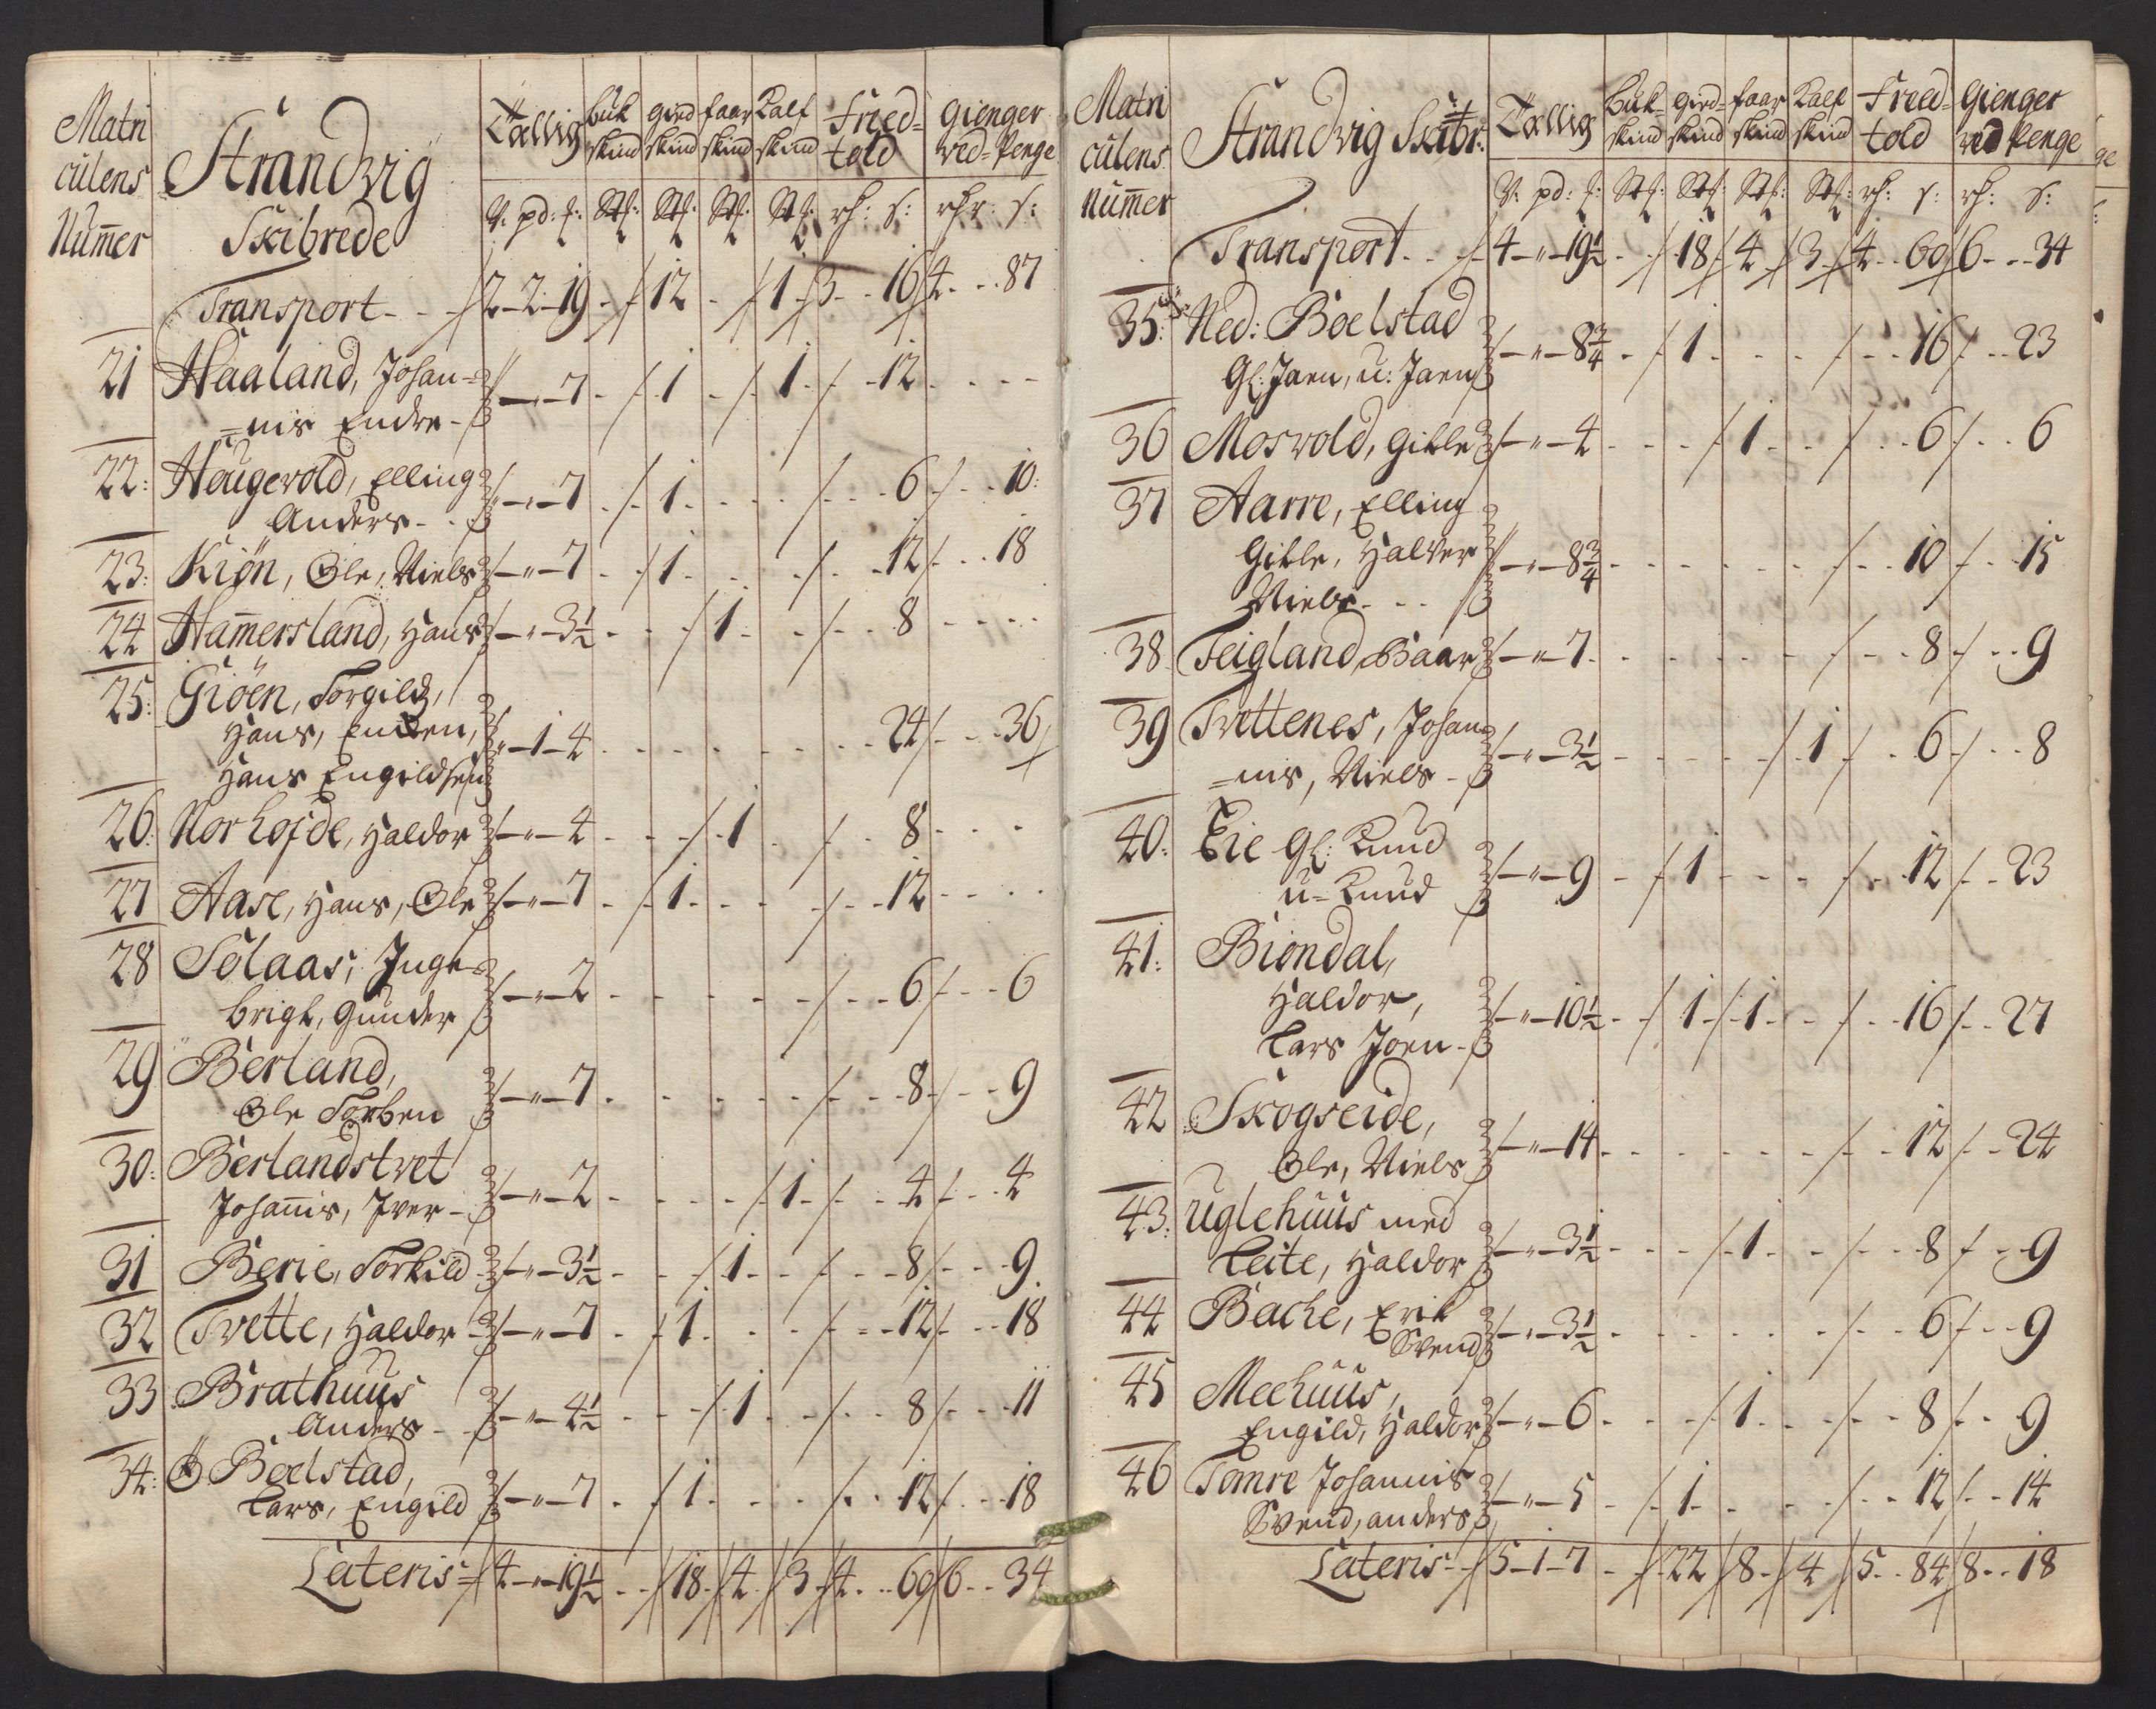 Matri
culens
Nummer
Strandvig
Skibrede
Tællig
buk
skind
gied
skind
faar
skind
Kalf
skind
Fried=
told
gienger
ved=Penge
V: pd: : Stk: Stk: Stk: Stk: rh: s: rhr: s:
Transport - - 2-2-19 - 12 - 1 3 - - 16 4 - - 87
21 Haaland, Johan=
=nis Endre - - " - 7 - 1 - 1 - - 12 - - - -
22: Haugevold, Elling
Anders - - - " - 7 - 1 - - - - 6 - - 10:
23: Kiøn, Ole, Niels - " - 7 - 1 - - - 12 - - 18
24 Hammersland, Hans - " - 3½ - - 1 - - - 8 - - - -
25: Giøen, Torgild,
Hans, Enken,
Hans Engildsen " - 1 - 4 - - - - - - 24 - - 36
26: Norhofde, Haldor - " - 4 - - - 1 - - 8 - - -
27 Aase, Hans, Ole - " - 7 - 1 - - - - 12 - - -
28 Solaas, Inge=
brigt, Gunder - " - 2 - - - - - - 6 - - 6
29 Berland,
Ole Torben - " - 7 - - - - - - 8 - - 9
30: Berlandstvet
Johannis, Iver - - " - 2 - - - - 1 - - 4 - - 4
31 Berie, Torkild - " - 3½ - - 1 - - - 8 - - 9
32 Tvette, Haldor - " - 7 - 1 - - - - 12 - - 18
33 Brathuus
Anders - - - " - 4½ - - - 1 - - - 8 - - 11
34: Ø Boelstad,
Lars, Engild - " - 7 - 1 - - - - 12 - - 18
Lateris = 4 - " - 19½ - - 18 - 4 - 3 - 4 - - 60 6 - - 34
Matri
culens
Nummer
Strandvig Skibr:
Tællig
Buk=
skind
gied=
skind
faar
skind
Kalf
skind
Fried=
told
Gienger
ved Penge
V: pd: : Stk: Stk: Stk: Stk: rh: s: rh: s:
Transport - - 4 - " - 19½ - - 18 4 3 4 - - 60 6 - - 34
35: Ned: Boelstad
Gl: Joen, u: Joen - " - 8¾ - 1 - - - - - 16 - - 23
36 Mosvold, Gitle - " - 4 - - - 1 - - - 6 - - 6
37 Aarre, Elling
Gitle, Halver
Niels - - - " - 8¾ - - - - - - - 10 - - 15
38. Teigland, Baar - " - 7 - - - - - - - 8 - - 9
39 Tvettenes, Johan=
=nis, Niels - - " - 3½ - - - - 1 - - 6 - - 8
40: Eie Gl: Knud
u= Knud - " - 9 - 1 - - - - - 12 - - 23
41: Biøndal,
Haldor,
Lars Joen - - " - 10½ - - 1 - 1 - - - 16 - - 27
42 Skogseide,
Ole, Niels - " - 14 - - - - - - - 12 - - 24
43: Uglehuus med
Leite, Haldor - " - 3½ - - - 1 - - - 8 - - 9
44 Bache, Erik
Svend - " - 3½ - - - - - - 6 - - 9
45 Meehuus,
Engild, Haldor - " - 6 - - - 1 - - - 8 - - 9
46 Tomre Johannis
Svend, anders - " - 5 - - 1 - - - - 12 - - 14
Lateris - - 5 - 1 - 7 - - 22 8 - 4 5 - - 84 8 - - 18